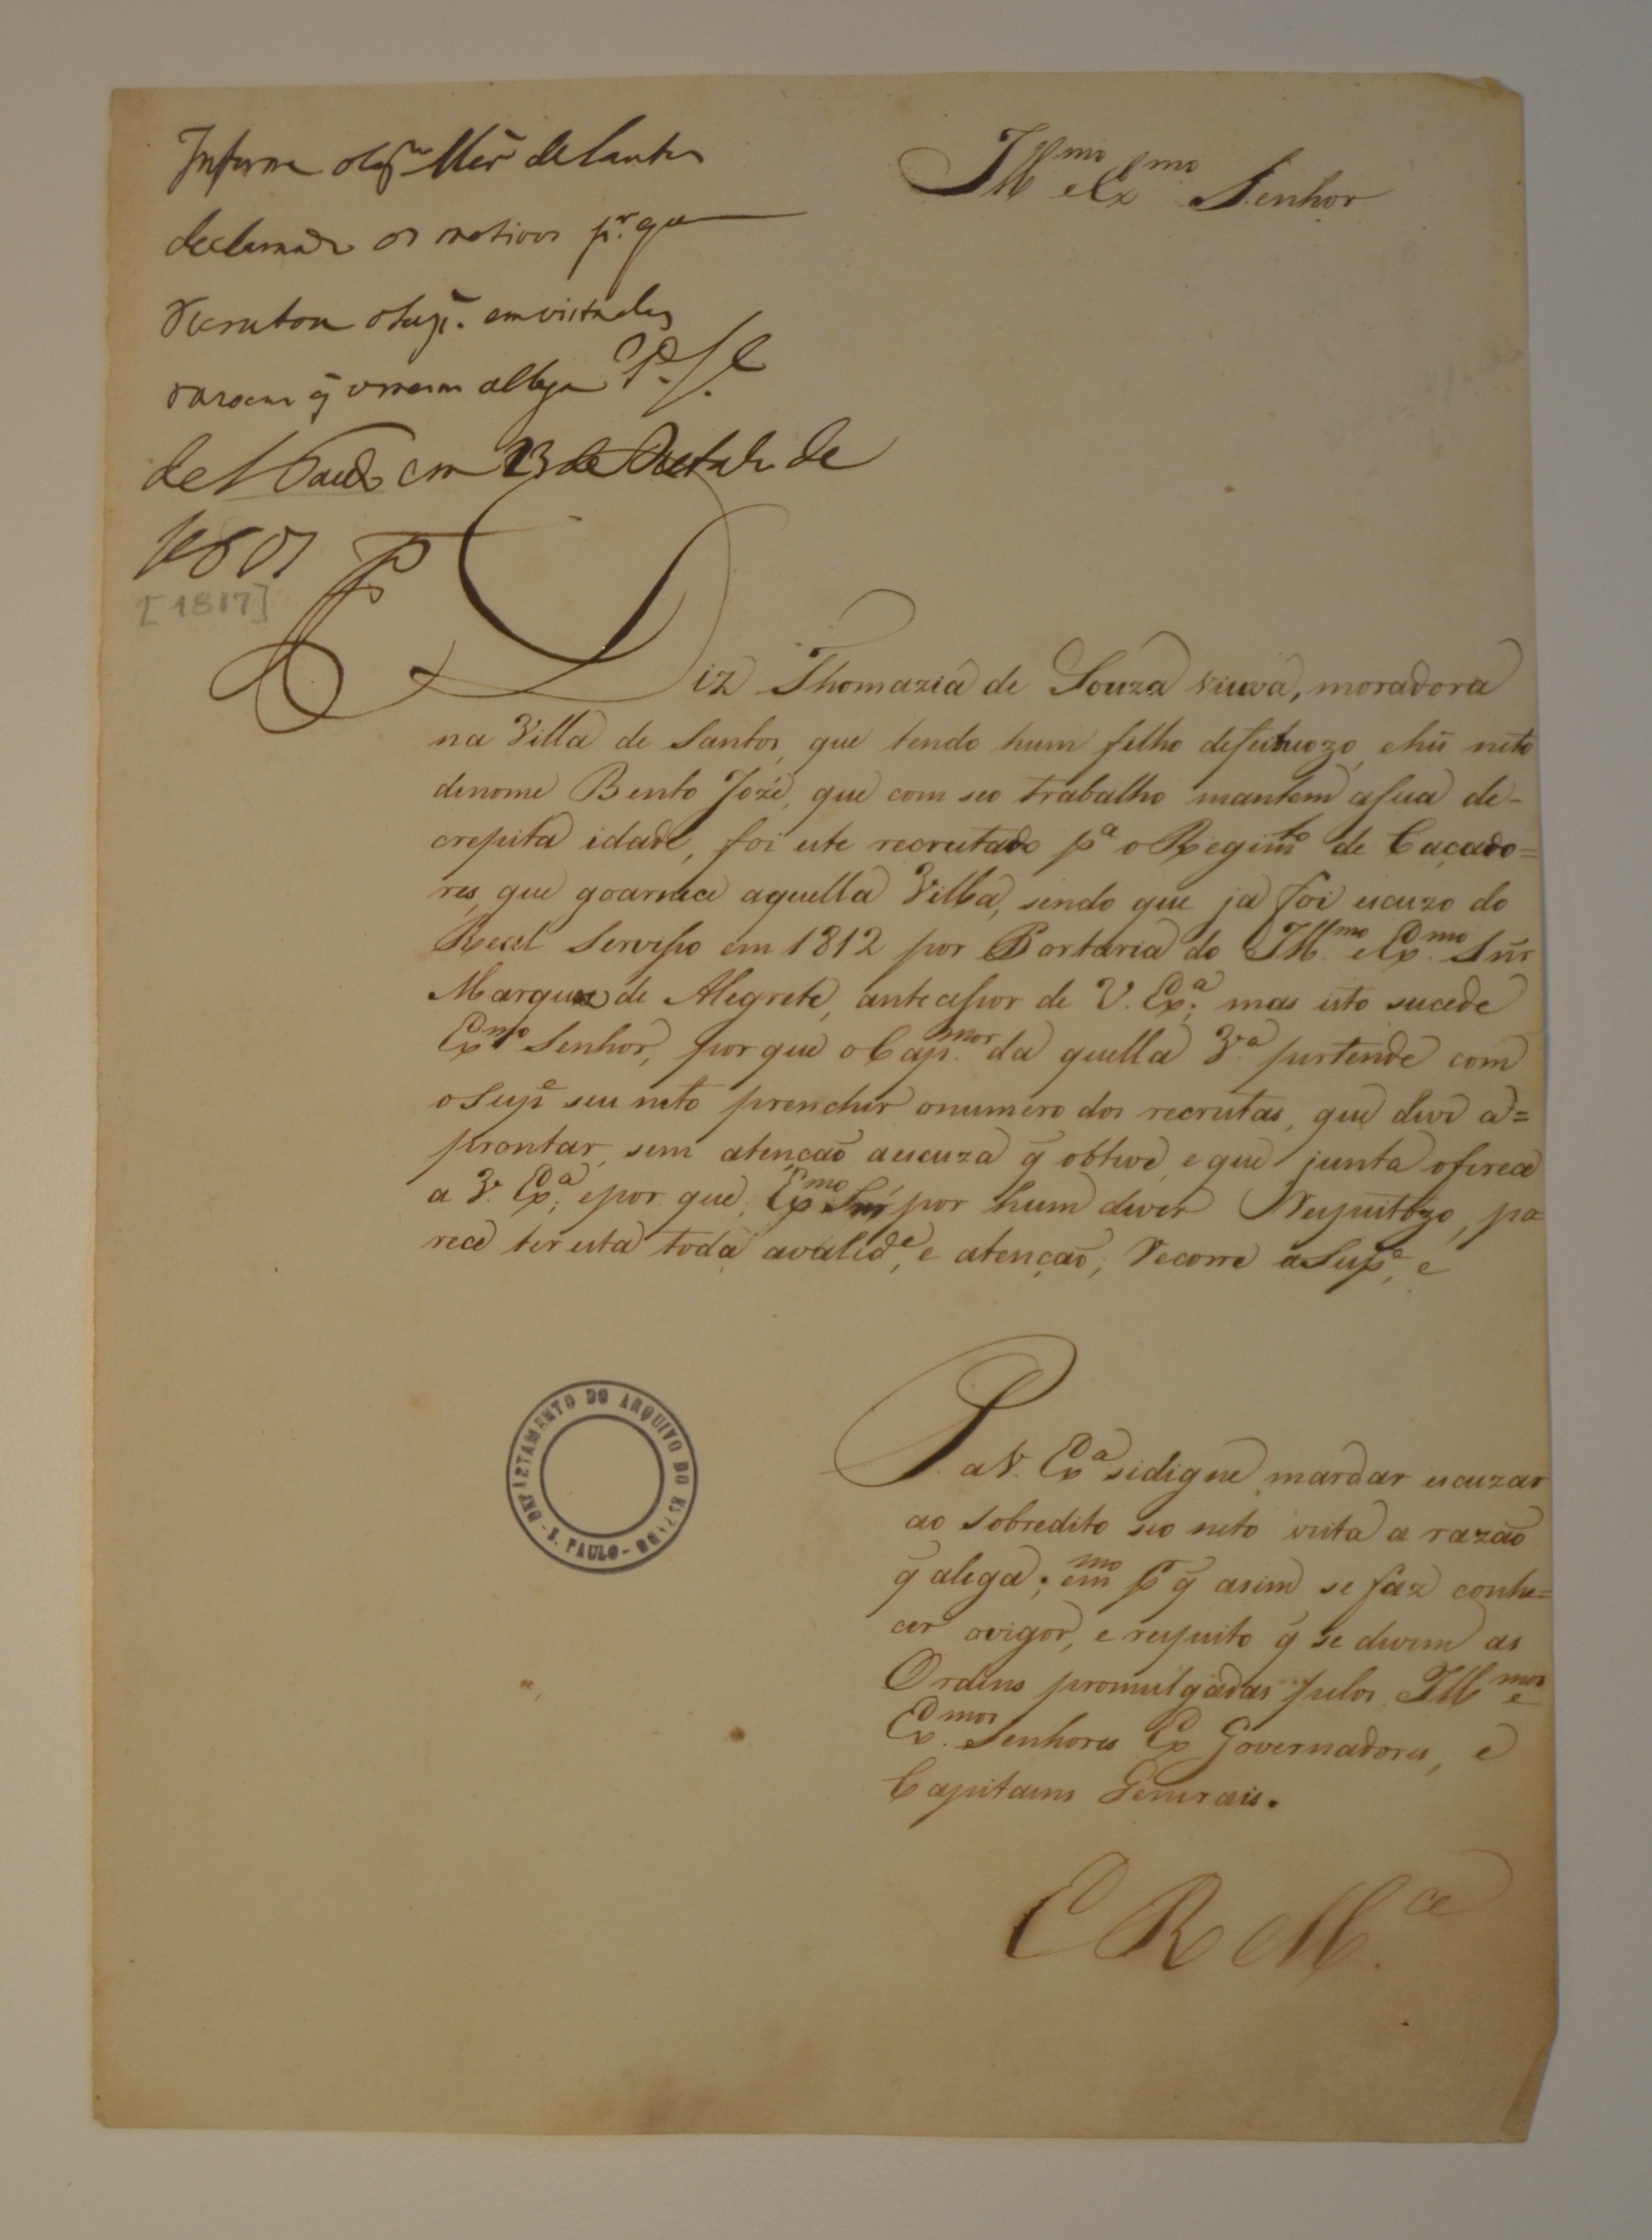 Informe o Cap.m Mór de Santos
declarando os motivos p.r que
recrutou o Sup.e em vista das
razoens q̃ o mesm allega
de S Paulo em 23 de Outubr de
[1817]
Ill.mo e Ex.mo Senhor
Diz Thomazia de Souza viuva, moradora
na Villa de Santos, que tendo hum filho defeituozo, e hũ neto
denome Bento Jozé, que com seo trabalho mantem asua de-
crepita idade, foi este recrutado p.a o Regim.to de Caçado=
res, que goarnece aquella Villa, sendo que ja foi escuzo do
Real Serviço em 1812 por Portaria do Ill.mo e Ex.mo Snr̃
Marques de Alegrete, antecessor de V. Ex.a; mas isto sucede
Ex.mo Senhor, por que o Cap.mor da quella V.a pertende com
o Sup.e seu neto prencher onumero dos recrutas, que deve a=
prontar, sem atenção aescuza q̃ obteve, e que junta oferece
a V. Ex.a; epor que, Ex.mo Snr̃ por hum dever Respeitozo, pa
rece ter esta toda avalid.e, e atenção; Recorre aSup.e, e
P. a V. Ex.a sidigne mandar escuzar
ao sobredito seo neto vista a razão
q̃ alega; em p q̃ asim se faz conhe=
cer ovigor, e respeito q̃ se devem as
Ordens promulgadas pelos Ill.mos e
Ex.mos Senhores Ex Governadores, e
Capitaens Generais.
E R M.ce
DEPARTAMENTO DO ARQUIVO DO ESTADO - S. PAULO -